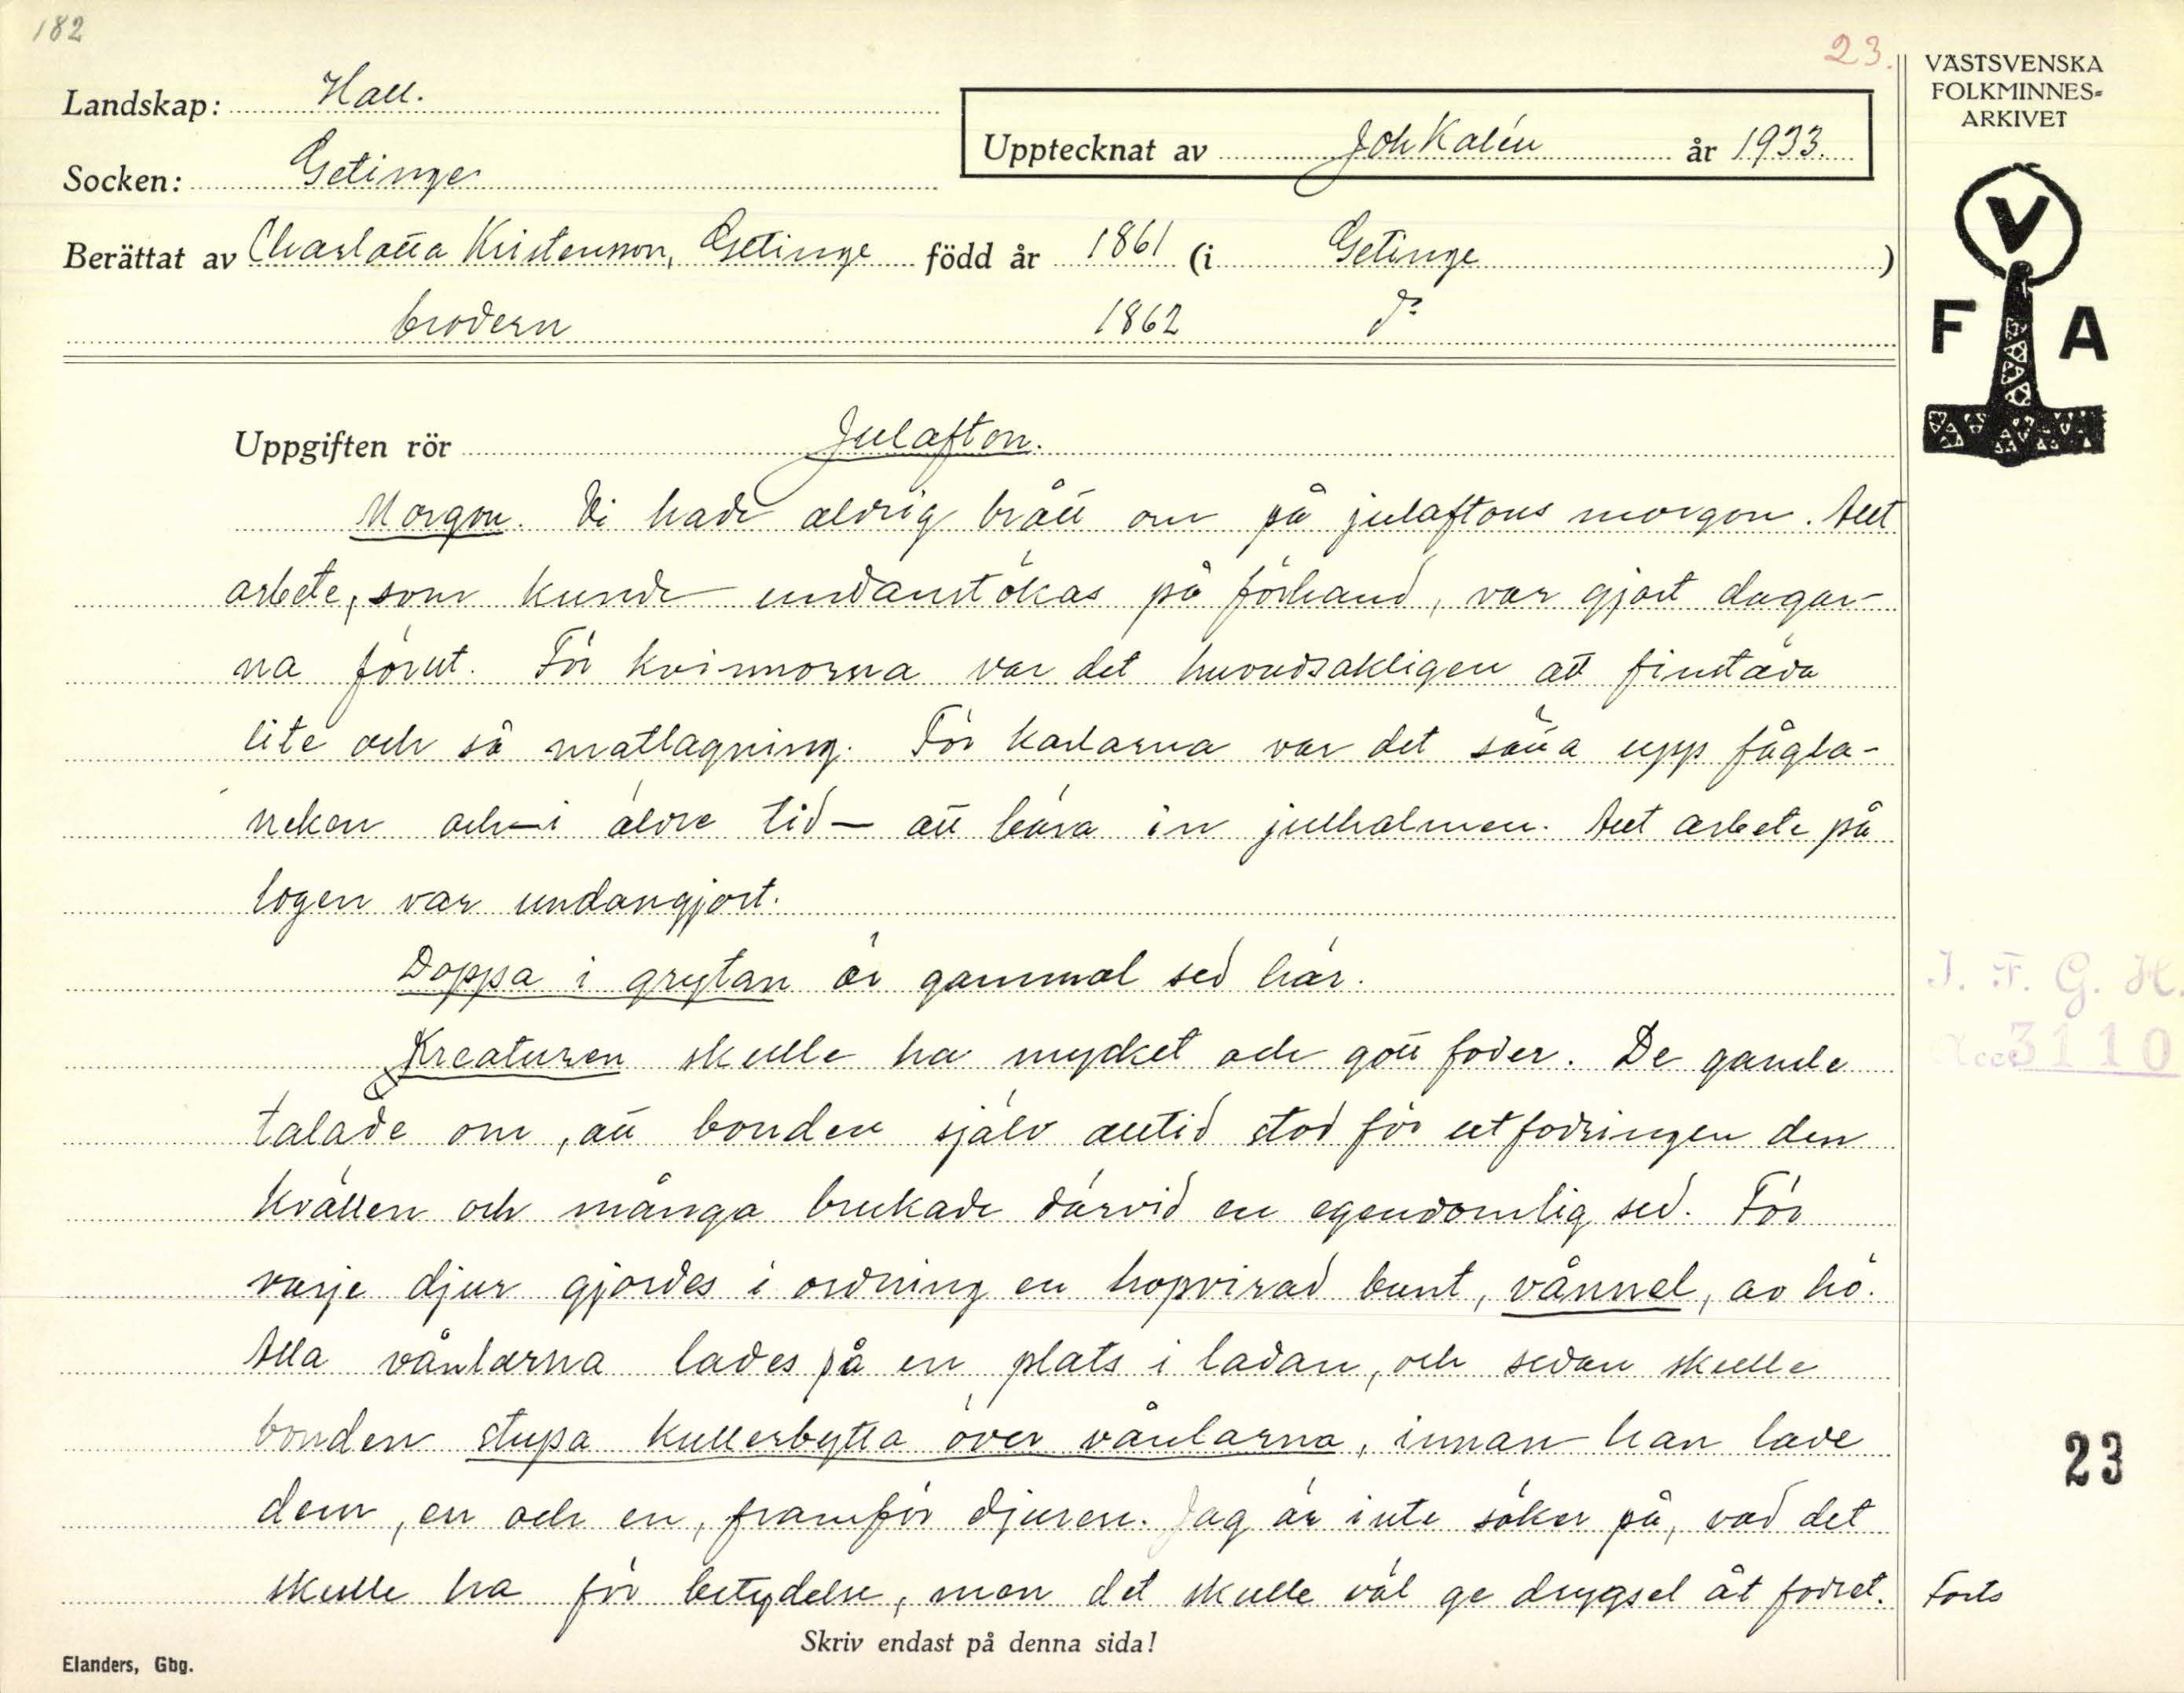 182
23.
VÄSTSVENSKA
FOLKMINNES-
ARKIVET
Landskap: Hall.
Upptecknat av Joh Kalén år 1933.
Socken: Getinge
Berättat av Charlotta Kristensson, Getinge född år 1861 (i Getinge)
brodern 1862 d:o
V
F A
Uppgiften rör Julafton.
Morgon. Vi hade aldrig brått om på julaftons morgon. Allt
arbete, som kunde undanstökas på förhand, var gjort dagar-
na förut. För kvinnorna var det huvudsakligen att finstäda
lite och så matlagning. För karlarna var det sätta upp fågla-
neken och – i äldre tid – att bära in julhalmen. Allt arbete på
logen var undangjort.
Doppa i grytan är gammal sed här.
Kreaturen skulle ha mycket och gott foder. De gamle
talade om, att bonden själv alltid stod för utfodringen den
kvällen och många brukade därvid en egendomlig sed. För
varje djur gjordes i ordning en hopvirad bunt, vånnel, av hö.
Alla vånlarna lades på en plats i ladan, och sedan skulle
bonden stupa kullerbytta över vånlarna, innan han lade
dem, en och en, framför djuren. Jag är inte säker på, vad det
skulle ha för betydelse, men det skulle väl ge drygsel åt fodret.
Forts
I. F. G. H.
Acc 3110
23
Skriv endast på denna sida!
Elanders, Gbg.